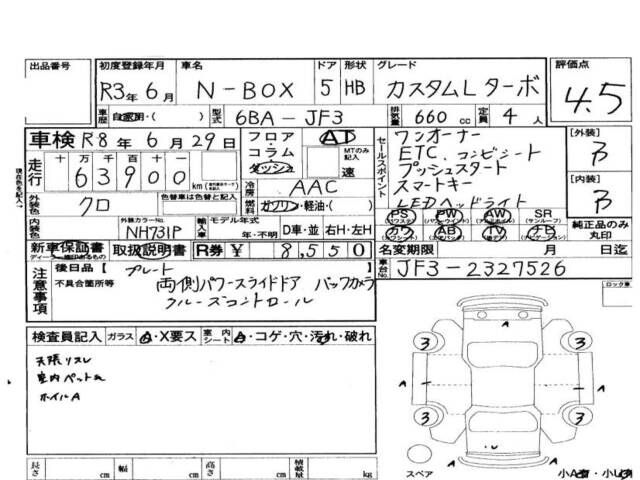 出品番号 初度登録年月 車名 ドア 形状 グレード 評価点
R3年6月 N-BOX 5 HB カスタムL ターボ 4.5
車歴 自家用・( ) 型式 6BA-JF3 排気量 660 cc 定員 4 人
車検 R8年 6月 29日 フロア・コラム・ダッシュ AT MTのみ記入 速
走行 十 万 千 百 十 一
63900 km
冷房 AAC
外装色 クロ 色替車は色替と記入 燃料 ガソリン・軽油・( )
内装色 外装カラーNo. NH731P 輸入車 モデル年式 年・不明 D車・並 右H・左H
新車保証書 取扱説明書 R券 ¥ 8,550
セールスポイント
ワンオーナー
ETC、コンビシート
プッシュスタート
スマートキー
LEDヘッドライト
PS (パワステ) PW (パワーウインド) AW (アルミホイル) SR (サンルーフ)
カワ AB (エアバッグ) TV ナビ 純正品のみ丸印
[外装] B
[内装] B
名変期限 月 日迄
車台No. JF3-2327526
注意事項 後日品【 プレート 】
不具合箇所等 両側パワースライドドア バックカメラ
クルーズコントロール
検査員記入 ガラス A・X要ス 車内シート A・コゲ・穴・汚れ・破れ
天張リスレ
室内ペット
ホイルA
ロック車
A
3 3
A A
3 3
スペア
小A ・小U
長さ cm 幅 cm 高さ cm 積載量 kg